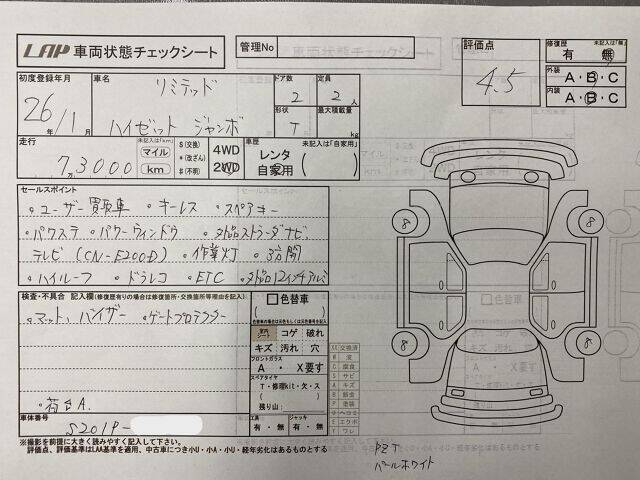 LAP 車両状態チェックシート
管理No
評価点
4.5
修復歴 未記入は「無」
有 無
外装
A・B・C
内装
A・B・C
初度登録年月
26/1月
車名
リミテッド
ハイゼット ジャンボ
ドア数
2
定員
2人
形状
T
最大積載量
kg
走行
73000
万
未記入は「km」
マイル
km
$(交換)
*(改ざん)
#(不明)
4WD
2WD
車歴 未記入は「自家用」
レンタ
自家用
セールスポイント
・ユーザー買取車 ・キーレス ・スペアキー
・パワステ ・パワーウィンドウ ・外品ストラーダナビ,
テレビ(CN-E200D) ・作業灯 ・3方開
・ハイルーフ ・ドラレコ ・ETC ・外品12インチアルミ
検査・不具合 記入欄(修復歴有りの場合は修復箇所・交換箇所等理由を記入)
・マット,バイザー ・ゲートプロテクター
・荷台A.
色替車
コゲ 破れ
キズ 汚れ 穴
フロントガラス
A ・ X要す
スペアタイヤ
T・修理kit・欠・ス
残り山:
工具
有・無
ジャッキ
有・無
XX 交換済
W 波
C 腐食
S サビ
A キズ
B 鈑金
P 塗装
U ヘコミ
E エクボ
Y ワレ
8
8
8
8
車体番号
S201P-
※撮影を前提に大きく読みやすく記入して下さい。
評価点、評価基準はLAA基準を適用、中古車につき小U・小A・小G・経年劣化はあるものとする
PZT
パールホワイト